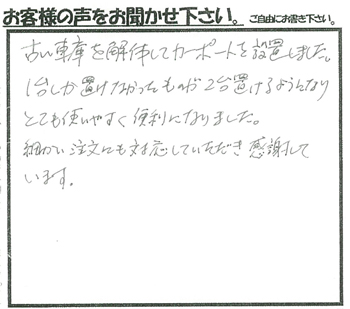 お客様の声をお聞かせ下さい。ご自由にお書き下さい。
古い車庫を解体してカーポートを設置しました。
1台しか置けなかったものが2台置けるようになり
とても使いやすく便利になりました。
細かい注文にも対応していただき感謝して
います。